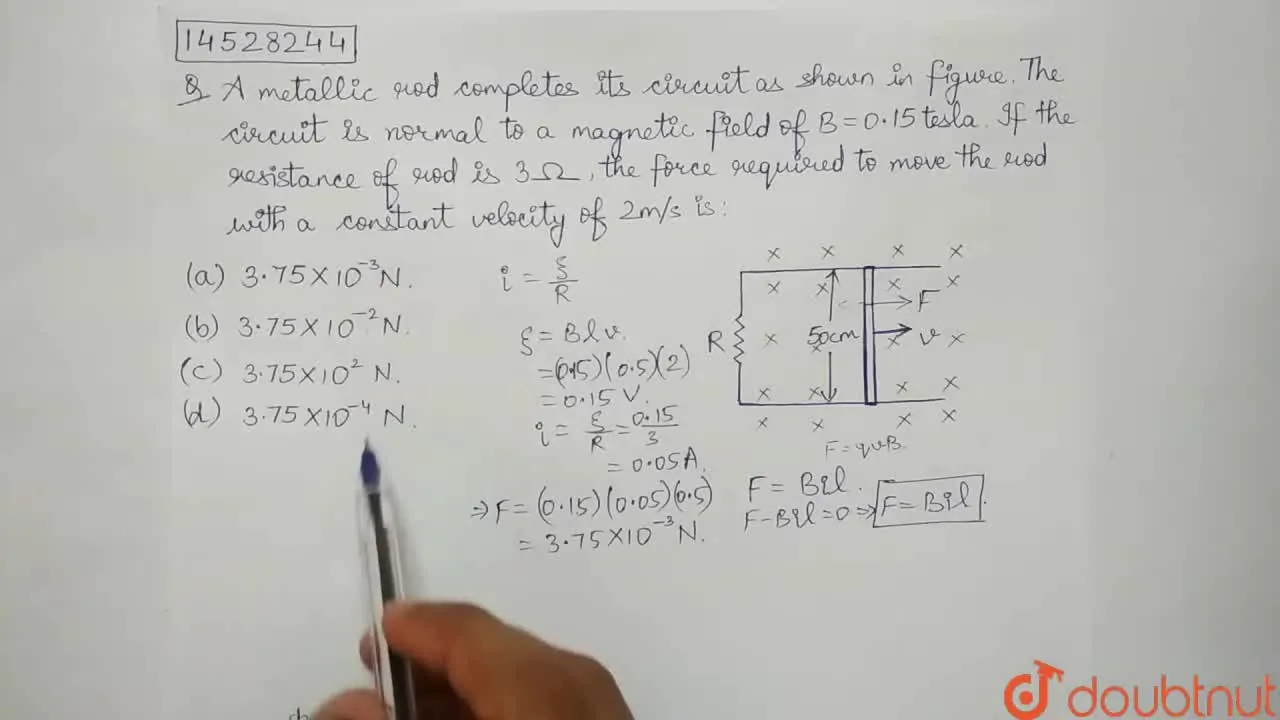 14528244
Q. A metallic rod completes its circuit as shown in figure. The
circuit is normal to a magnetic field of B = 0.15 tesla. If the
resistance of rod is 3Ω, the force required to move the rod
with a constant velocity of 2m/s is:
(a) 3.75×10⁻³N.
(b) 3.75×10⁻²N.
(c) 3.75×10² N.
(d) 3.75×10⁻⁴ N.
i = ξ/R
ξ = Blv.
= (0.15)(0.5)(2)
= 0.15 V.
i = ξ/R = 0.15/3
= 0.05A.
⇒ F = (0.15)(0.05)(0.5)
= 3.75×10⁻³N.
× × × ×
× × × ×
F
R × 50cm × × v ×
× × × ×
× × × ×
F = qvB.
F = Bil.
F - Bil = 0 ⇒ F = Bil.
doubtnut